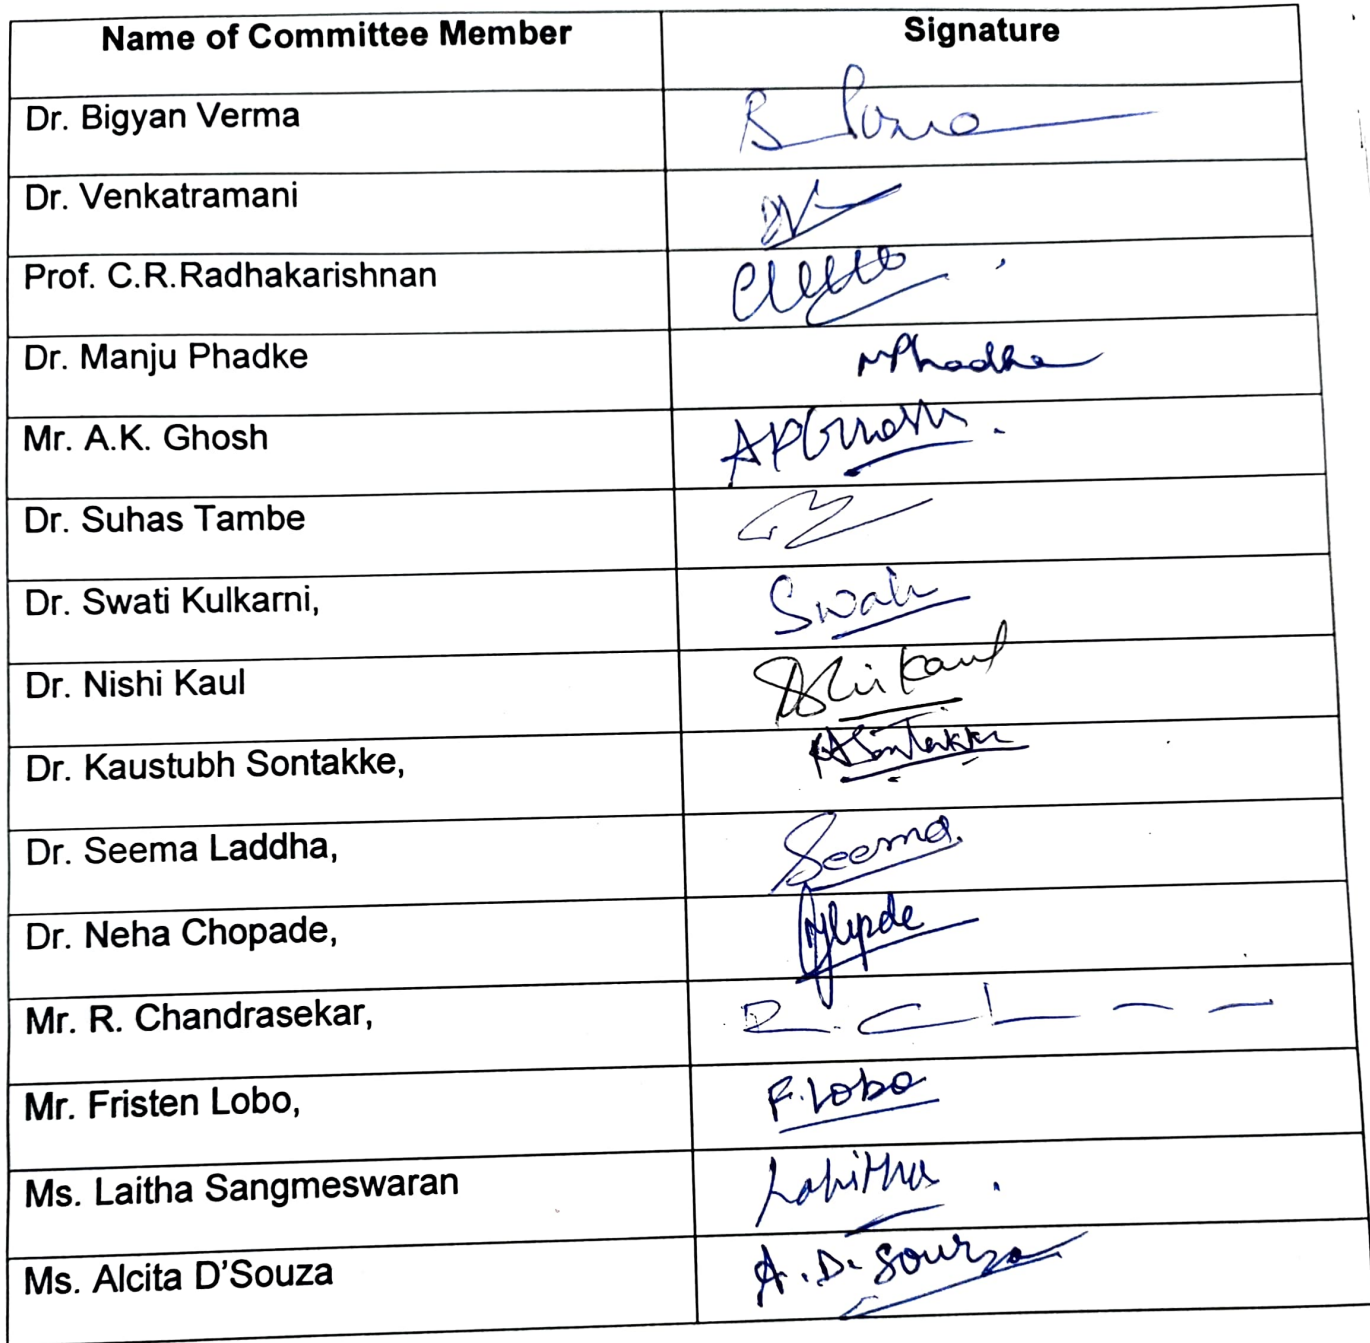 Name of Committee Member Signature
Dr. Bigyan Verma
Dr. Venkatramani
Prof. C.R.Radhakarishnan
Dr. Manju Phadke MPhadke
Mr. A.K. Ghosh AKGhosh.
Dr. Suhas Tambe
Dr. Swati Kulkarni, Swati
Dr. Nishi Kaul Nishi Kaul
Dr. Kaustubh Sontakke, KASontakke
Dr. Seema Laddha, Seema
Dr. Neha Chopade,
Mr. R. Chandrasekar,
Mr. Fristen Lobo, F. Lobo
Ms. Laitha Sangmeswaran Lalitha
Ms. Alcita D'Souza A. D. Souza